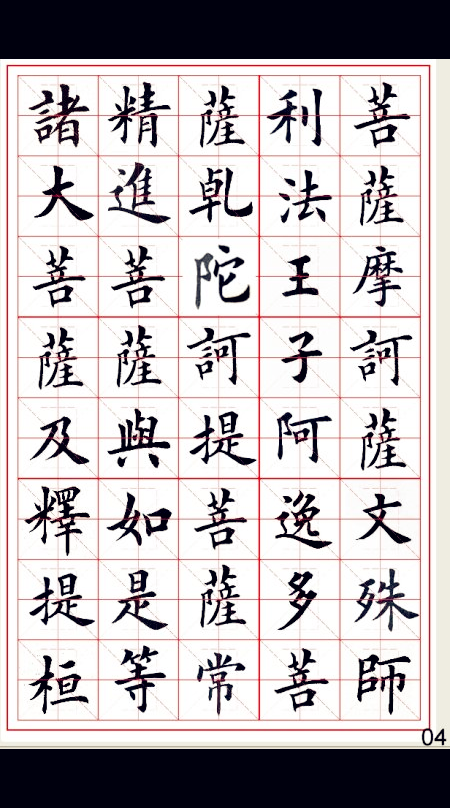 菩薩摩訶薩文殊師
利法王子阿逸多菩
薩乹陀訶提菩薩常
精進菩薩與如是等
諸大菩薩及釋提桓
04